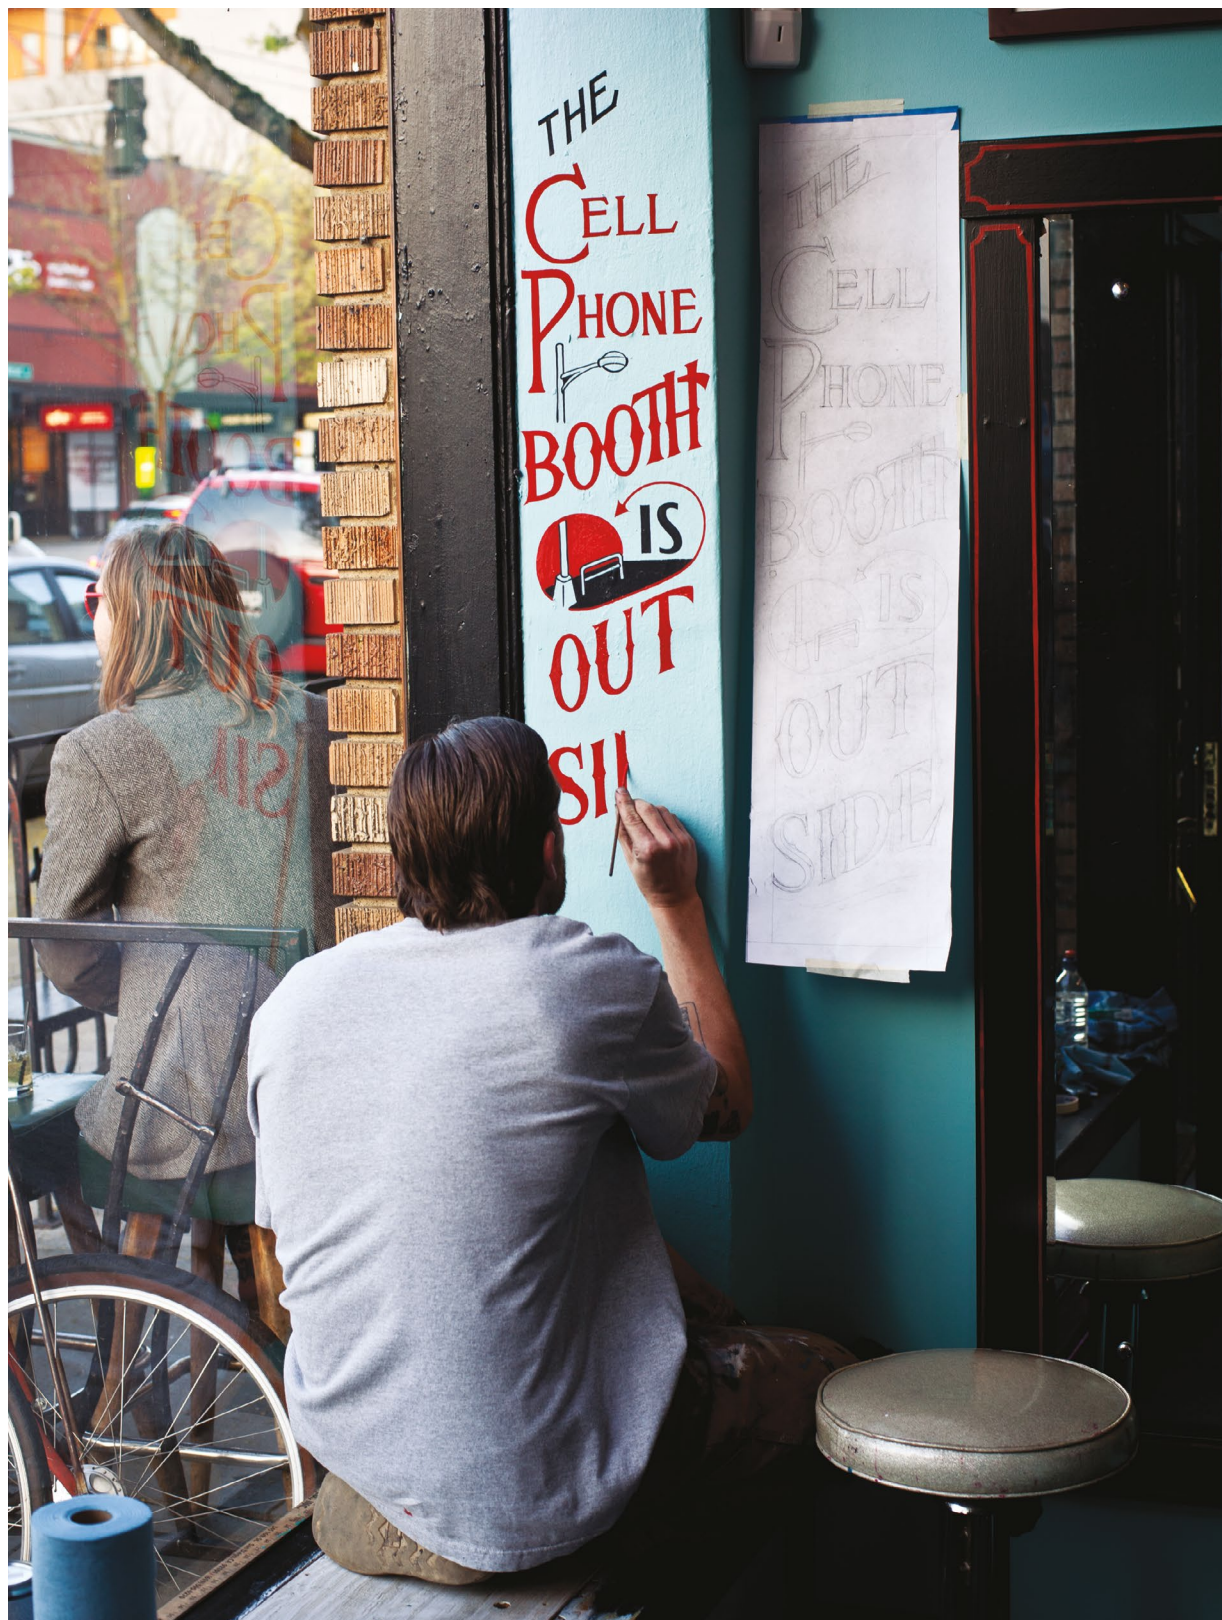 THE
CELL
PHONE
BOOTH
IS
OUT
SI
THE
CELL
PHONE
BOOTH
IS
OUT
SIDE